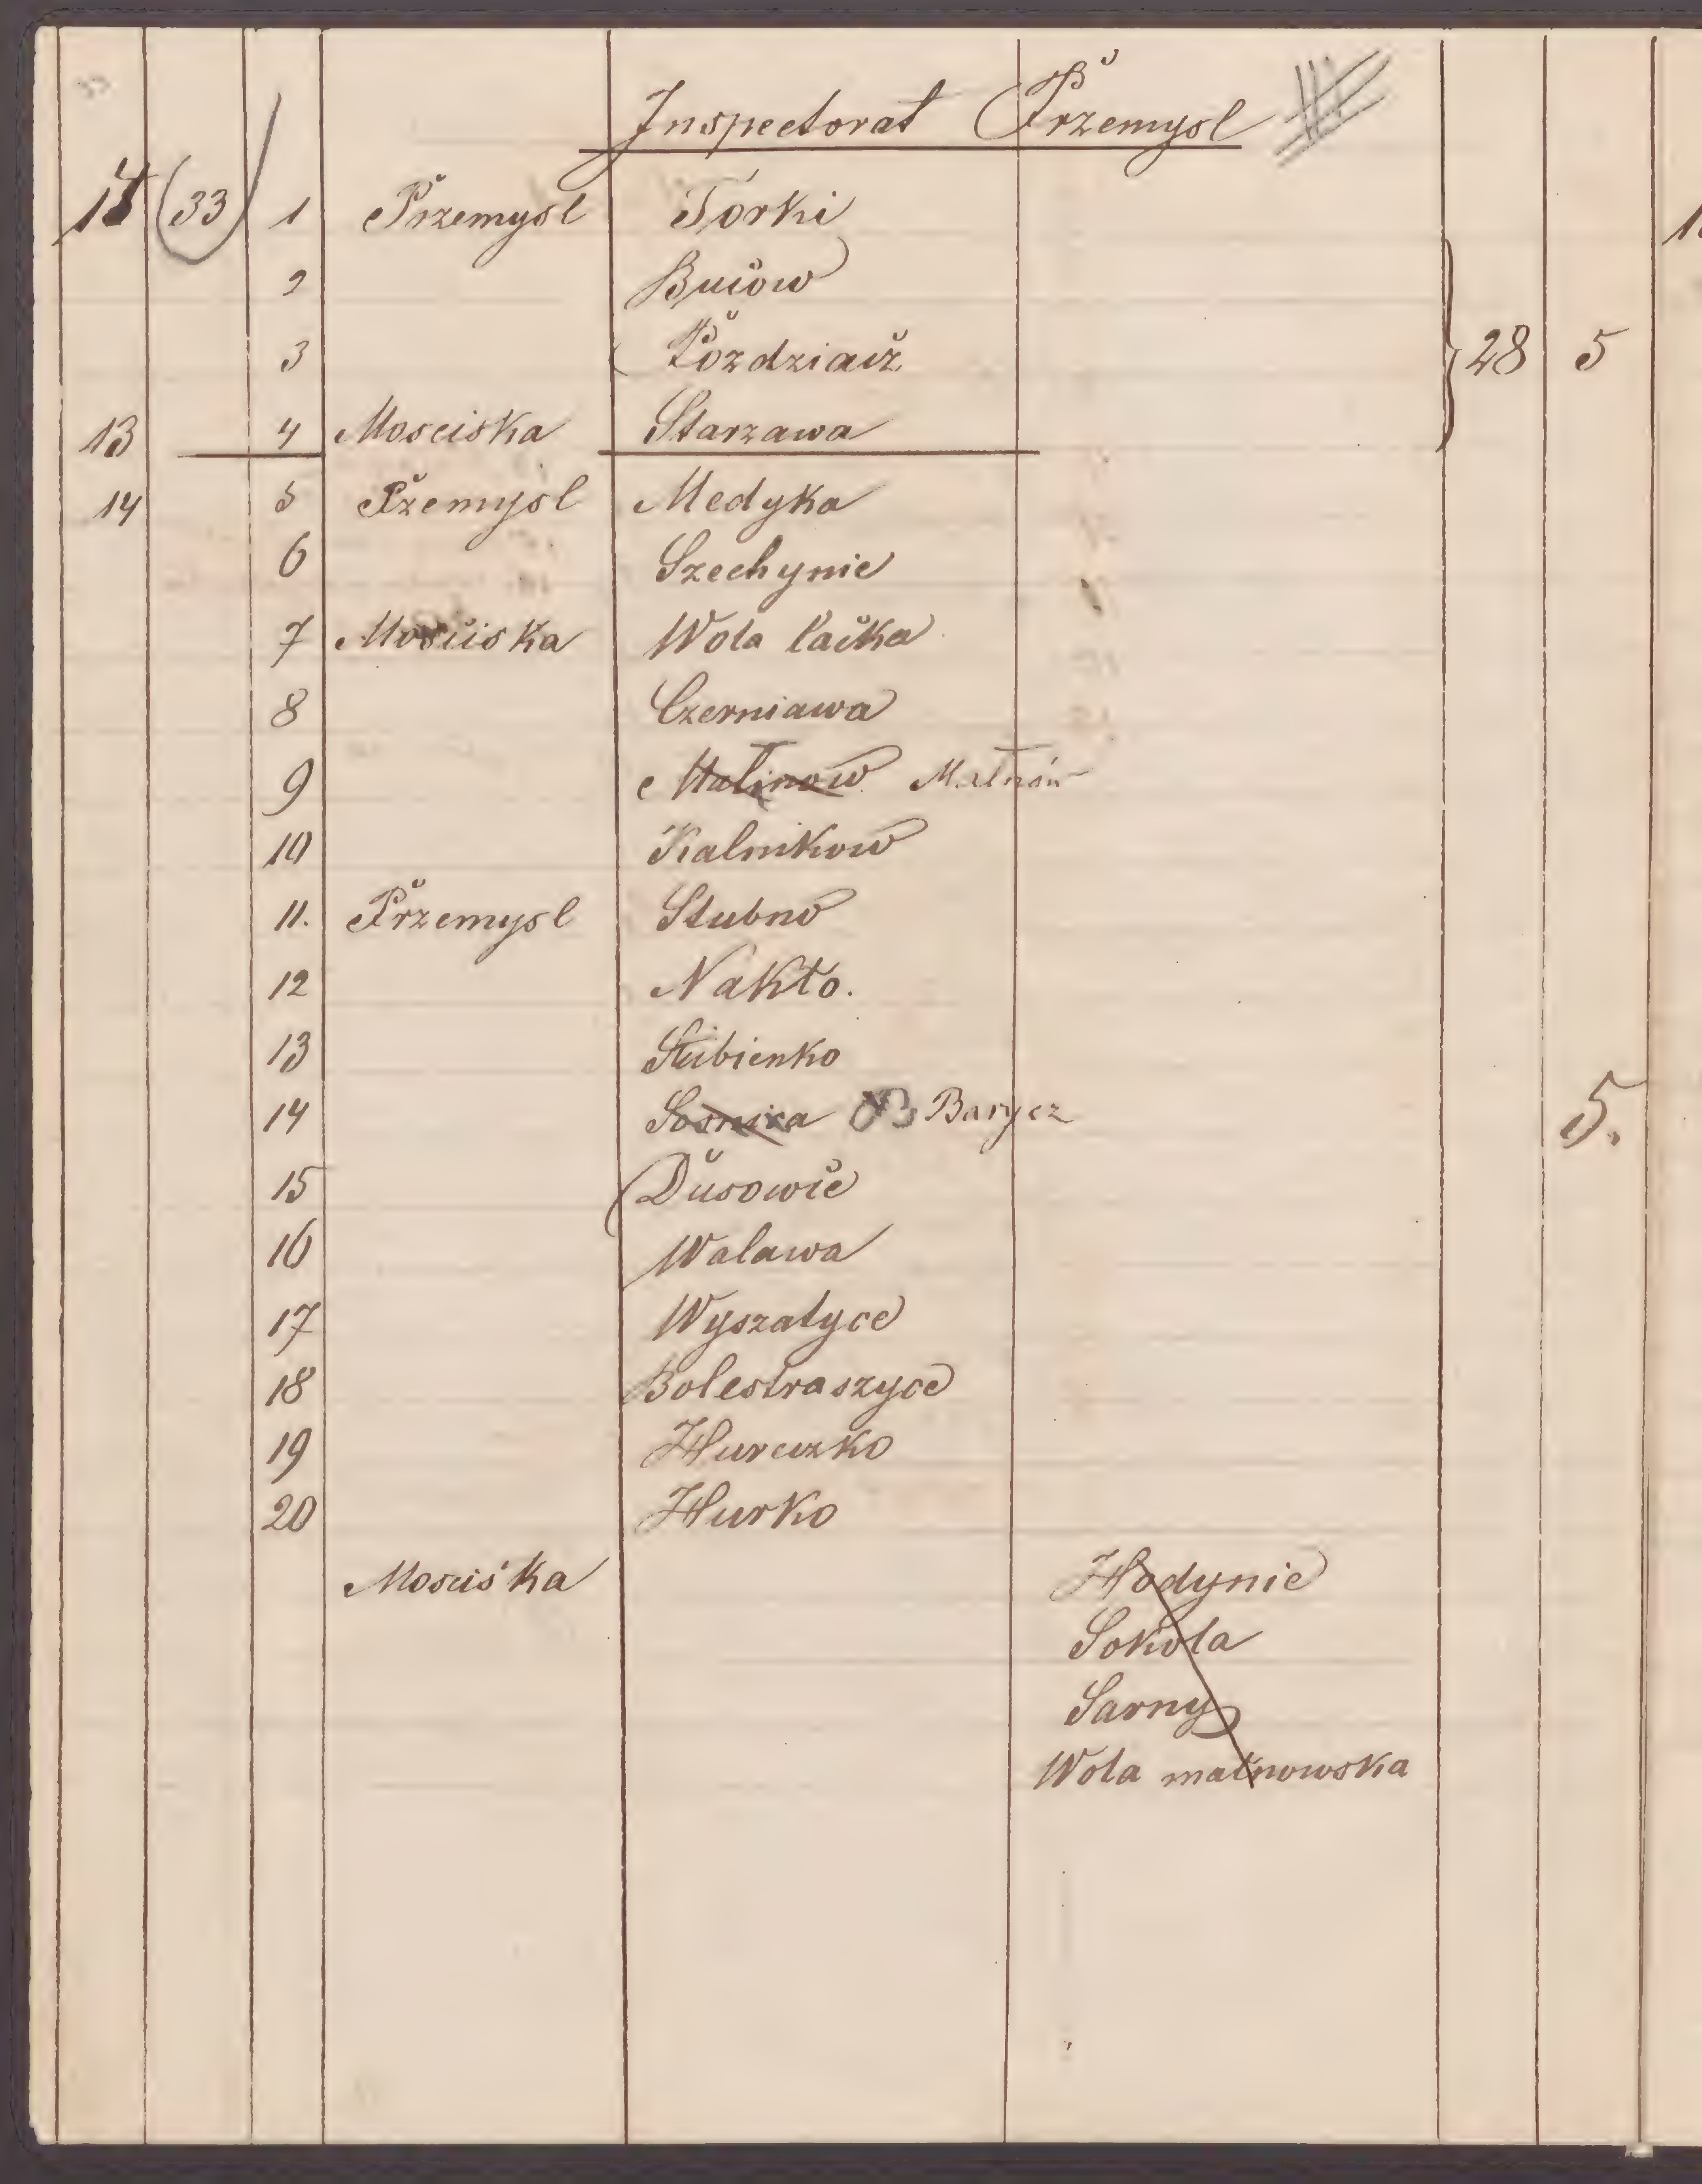 Inspectorat Przemysl
14 (33) 1 Przemysl Torki
2 Buców
3 Pozdziacz 28 5
13 4 Mosciska Starzawa
14 5 Pzemysl Medyka
6 Szechynie
7 Mosciska Wola łacka
8 Czerniawa
9 Małinow Małnów
10 Kalnikow
11. Przemysl Stubno
12 Nakło.
13 Stubienko
14 Sosnica B Barycz 5.
15 Dusowce
16 Walawa
17 Wyszatyce
18 Bolestraszyce
19 Hureczko
20 Hurko
Mosciska Hodynie
Sokola
Sarny
Wola małnowska